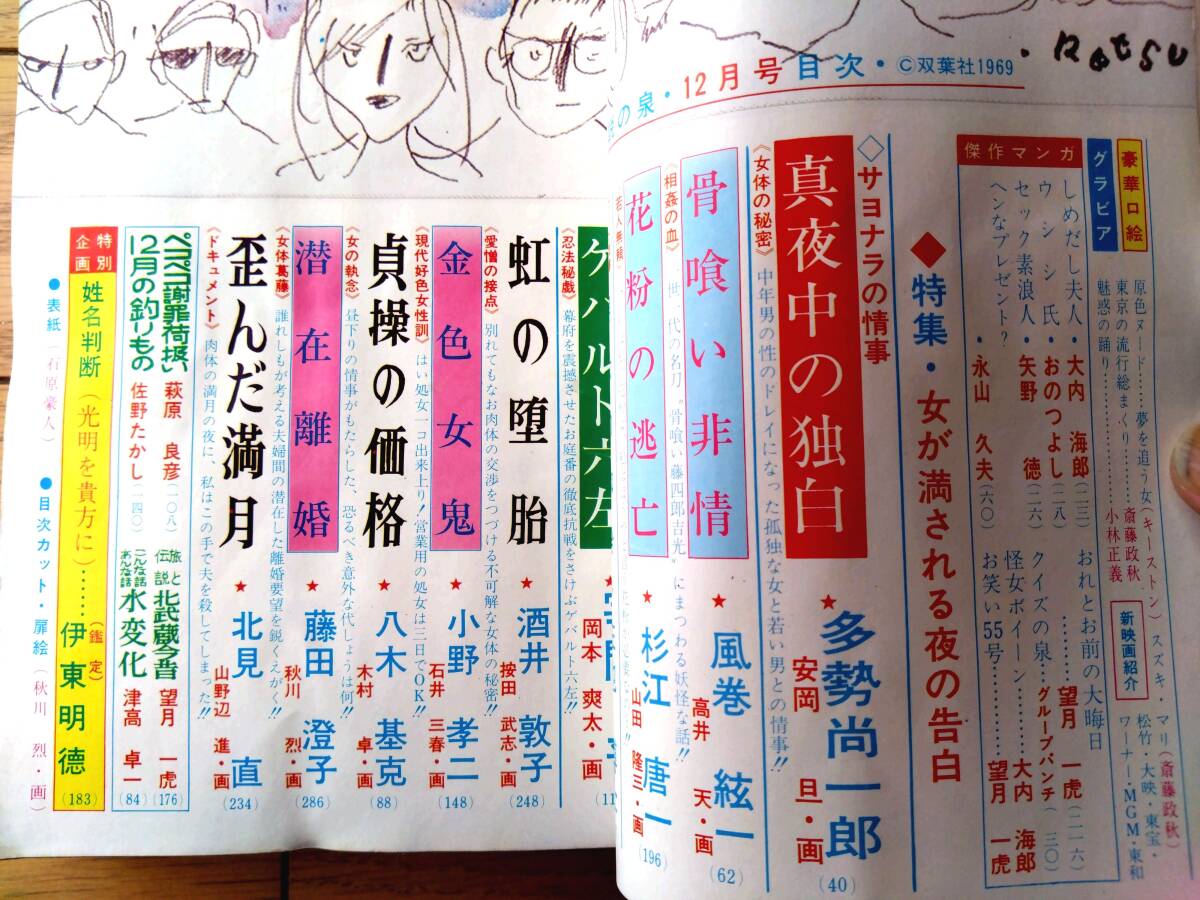 の泉・12月号目次・©双葉社1969
Ratsu
豪華口絵
原色ヌード……夢を追う女(キーストン)
東京の流行総まくり……斎藤政秋
グラビア
魅惑の踊り……小林正義
スズキ・マリ(斎藤政秋)
新映画紹介
松竹・大映・東宝・
ワーナー・MGM・東和
傑作マンガ
しめだし夫人・大内 海郎(二三)
ウシシ氏・おのつよし(二八)
セック素浪人・矢野 徳(二六)
ヘンなプレゼント?・永山 久夫(六〇)
おれとお前の大晦日
……望月 一虎(二一六)
クイズの泉…グループパンチ(三〇)
怪女ボイーン……大内 海郎
お笑い55号……望月 一虎
◆特集・女が満される夜の告白
◇サヨナラの情事
真夜中の独白★多勢尚一郎
安岡 旦・画
(40)
《女体の秘密》中年男の性のドレイになった孤独な女と若い男との情事!!
骨喰い非情★風巻 絃一
高井 天・画
(62)
《相姦の血》世一代の名刀〝骨喰い藤四郎吉光〟にまつわる妖怪な話!!
花粉の逃亡★杉江 唐一
山田 隆三・画
(196)
ゲバルト六左★
岡本 爽太・画
《忍法秘戯》幕府を震撼させたお庭番の徹底抗戦をさけぶゲバルト六左!!
虹の堕胎★酒井 敦子
按田 武志・画
(248)
《愛憎の接点》別れてもなお肉体の交渉をつづける不可解な女体の秘密!!
金色女鬼★小野 孝二
石井 三春・画
(148)
《現代好色女性訓》はい処女一コ出来上り!営業用の処女は三日でOK!!
貞操の価格★八木 基克
木村 卓・画
(88)
《女の執念》昼下りの情事がもたらした、恐るべき意外な代しょうは何!!
潜在離婚★藤田 澄子
秋川 烈・画
(286)
《女体葛藤》誰れしもが考える夫婦間の潜在した離婚要望を鋭くえがく!!
歪んだ満月★北見 直
山野辺 進・画
(234)
《ドキュメント》肉体の満月の夜に、私はこの手で夫を殺してしまった!!
ペコペコ謝罪荷扱い 萩原 良彦(一〇八)
12月の釣りもの 佐野たかし(一四〇)
旅と伝説 北武蔵今昔 望月 一虎(176)
こんな話あんな話 水変化 津高 卓一(84)
特別企画
姓名判断(光明を貴方に)……(鑑定)伊東明徳(183)
●表紙(石原豪人) ●目次カット・扉絵(秋川 烈・画)